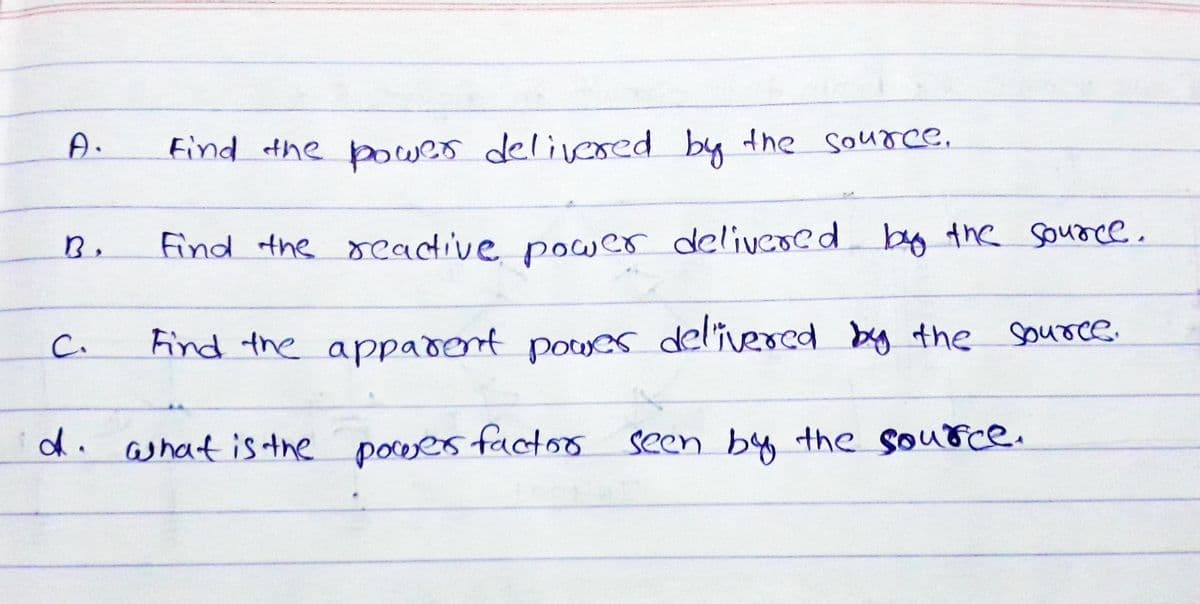 A. Find the power delivered by the source.
B. Find the reactive power delivered by the source.
C. Find the apparent power delivered by the source.
d. what is the power factor seen by the source.